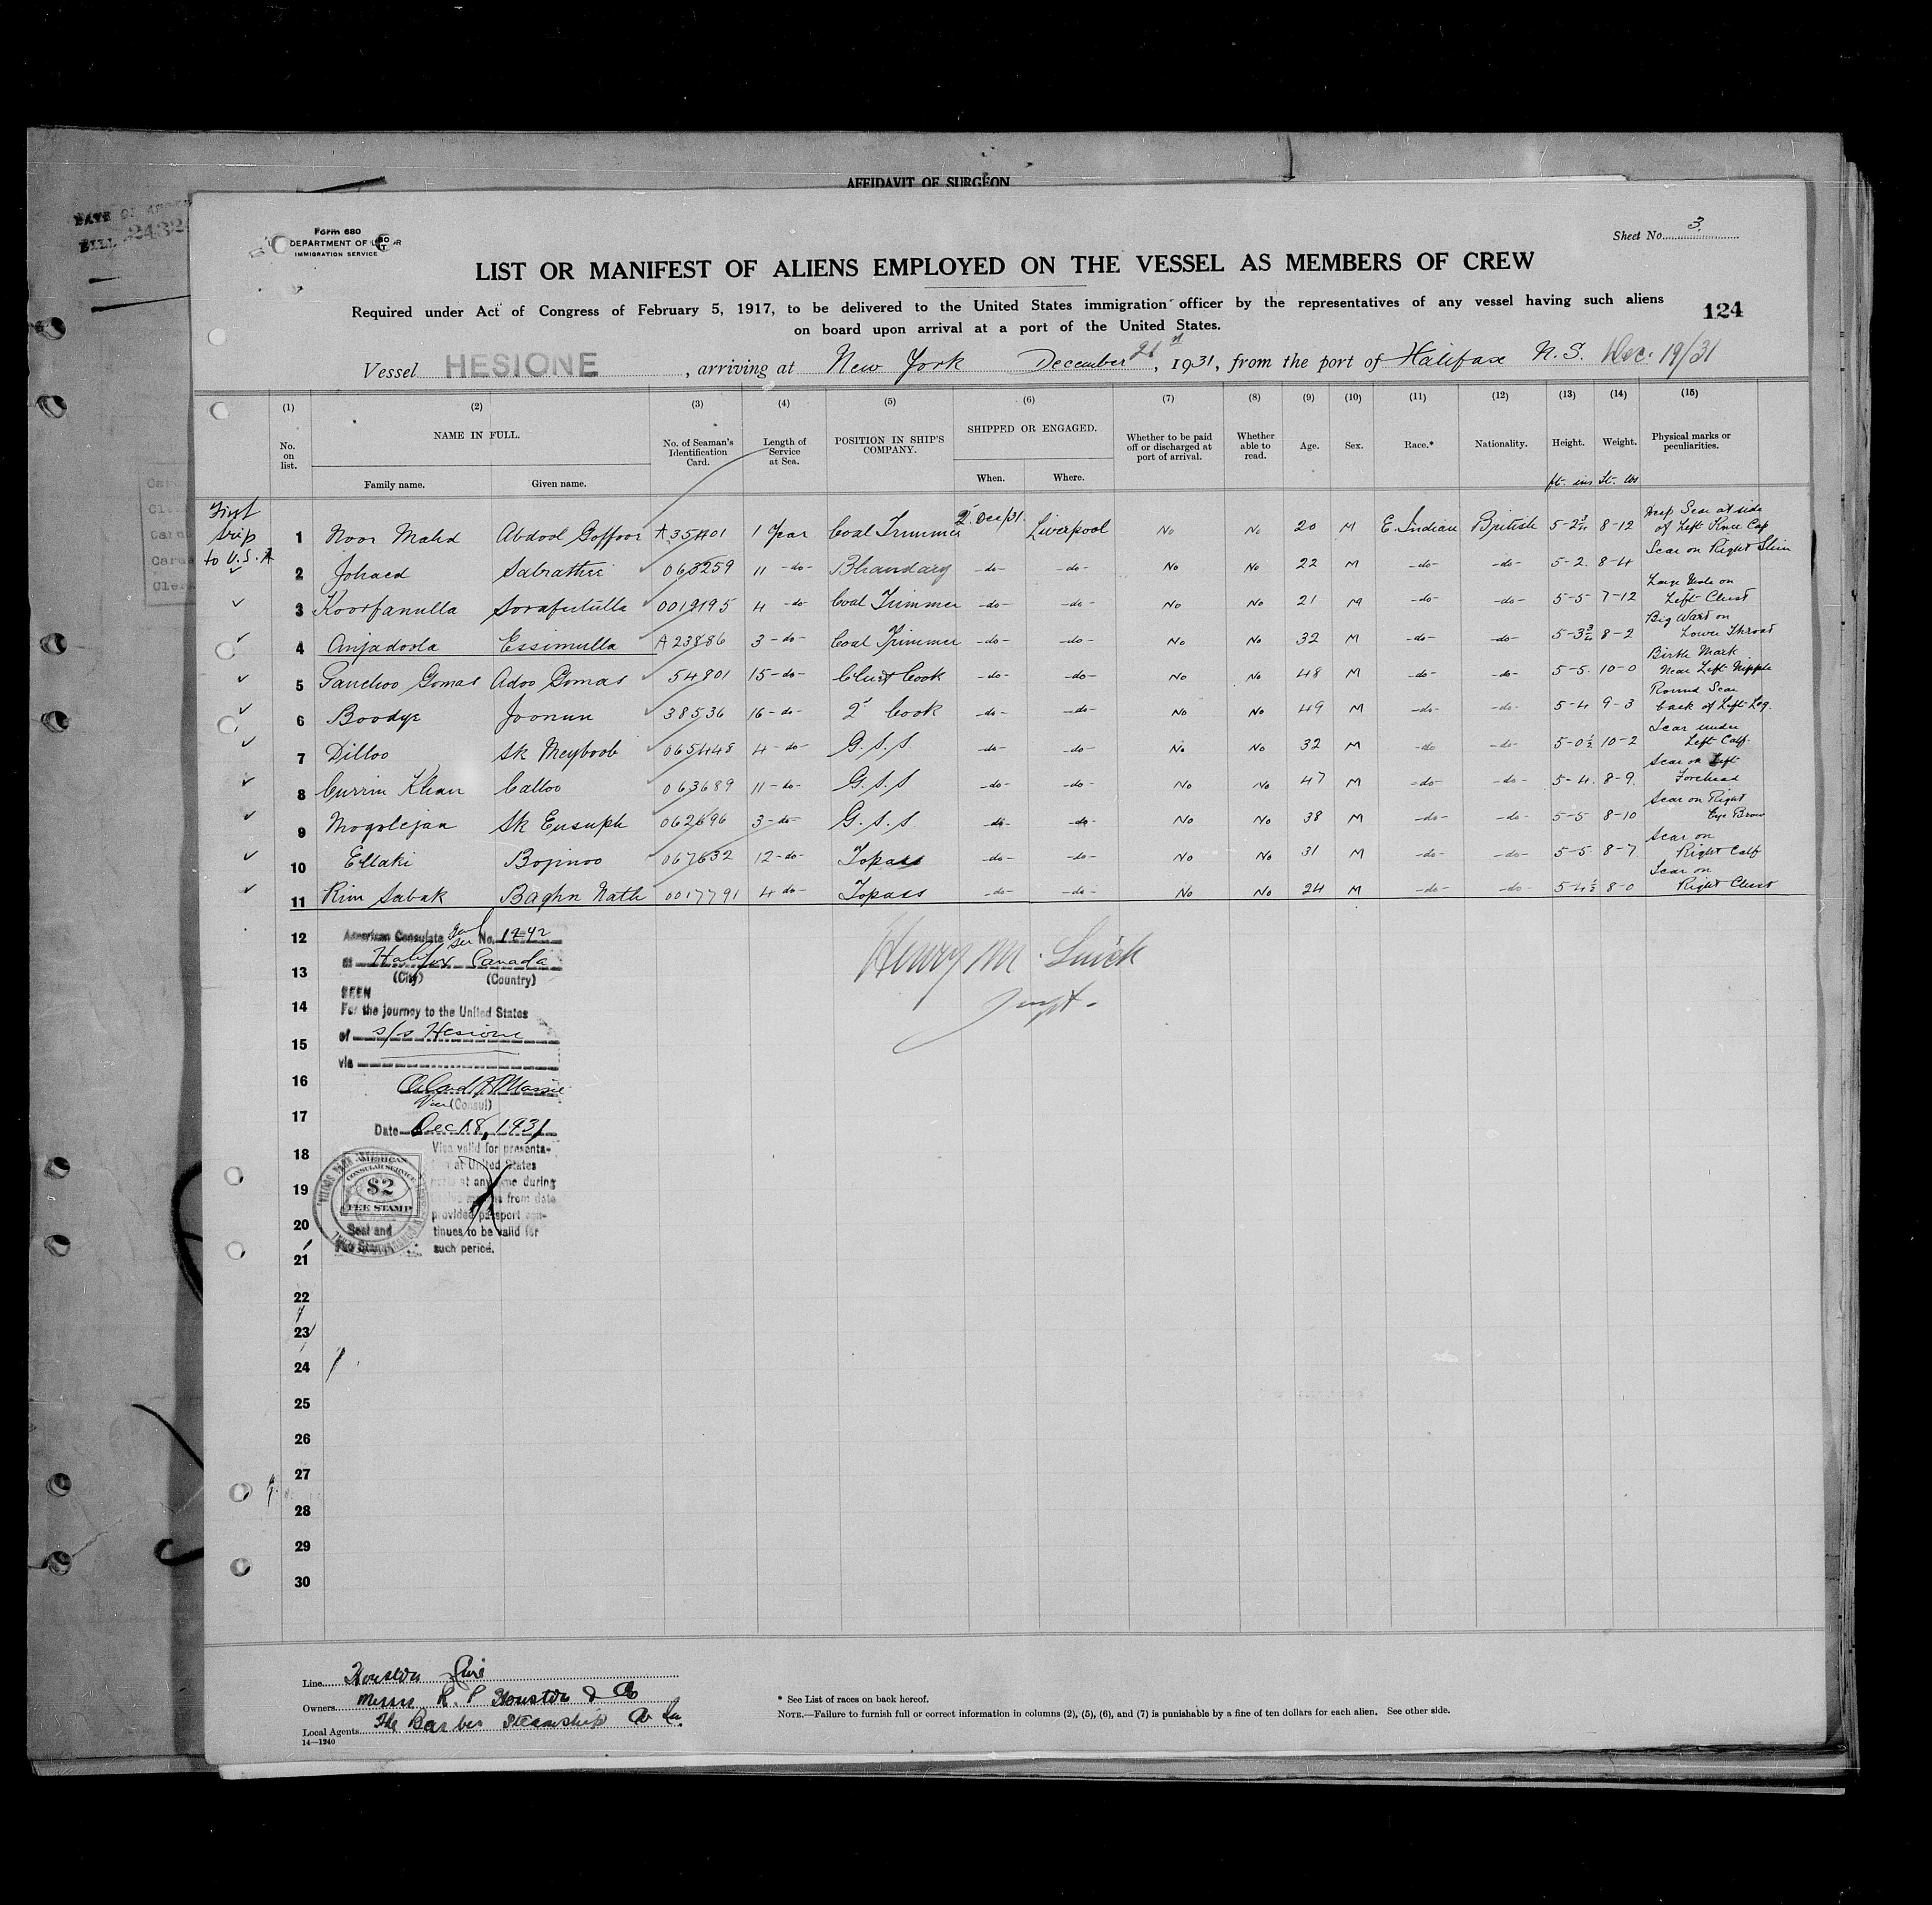 AFFIDAVIT OF SURGEON
Form 680
DEPARTMENT OF LABOR
IMMIGRATION SERVICE
Sheet No. 3.
LIST OR MANIFEST OF ALIENS EMPLOYED ON THE VESSEL AS MEMBERS OF CREW
Required under Act of Congress of February 5, 1917, to be delivered to the United States immigration officer by the representatives of any vessel having such aliens
on board upon arrival at a port of the United States.
124
Vessel HESIONE, arriving at New York December 21, 1931, from the port of Halifax N.S. Dec. 19/31
(1) (2) (3) (4) (5) (6) (7) (8) (9) (10) (11) (12) (13) (14) (15)
No. on list. NAME IN FULL. No. of Seaman's Identification Card. Length of Service at Sea. POSITION IN SHIP'S COMPANY. SHIPPED OR ENGAGED. Whether to be paid off or discharged at port of arrival. Whether able to read. Age. Sex. Race.* Nationality. Height. Weight. Physical marks or peculiarities.
Family name. Given name. When. Where. ft. ins St. lbs
First trip to U.S.A
1 Noor Mahd Abdool Goffoor A 35401 1 Year Coal Trimmer 2 Dec/31 Liverpool No No 20 M E. Indian British 5-2 8-12 Deep Scar at side of Left Knee Cap
2 Johaed Sabrattee 063259 11 -do- Bhandary -do- -do- No No 22 M -do- -do- 5-2 8-4 Scar on Right Shin
3 Koorfanulla Sorafutulla 0019195 4 -do- Coal Trimmer -do- -do- No No 21 M -do- -do- 5-5 7-12 Large Mole on Left Chest
4 Anjadoola Essimulla A 23886 3 -do- Coal Trimmer -do- -do- No No 32 M -do- -do- 5-3 8-2 Big Wart on Lower Throat
5 Panchoo Gomas Adoo Gomas 54801 15 -do- Chief Cook -do- -do- No No 48 M -do- -do- 5-5 10-0 Birth Mark Near Left Nipple
6 Boodye Joonun 38536 16 -do- 2 Cook -do- -do- No No 49 M -do- -do- 5-4 9-3 Round Scar back of Left Leg
7 Dilloo Sk Meyboob 065448 4 -do- G.S.S. -do- -do- No No 32 M -do- -do- 5-0½ 10-2 Scar under Left Calf
8 Currim Khan Calloo 063689 11 -do- G.S.S -do- -do- No No 47 M -do- -do- 5-4 8-9 Scar on Left Forehead
9 Mogolejan Sk Eusuph 062696 3 -do- G.S.S -do- -do- No No 38 M -do- -do- 5-5 8-10 Scar on Right Eye Brow
10 Ellaki Bojinoo 067632 12 -do- Topass -do- -do- No No 31 M -do- -do- 5-5 8-7 Scar on Right Calf
11 Rim Sabak Baghn Nath 0017791 4 -do- Topass -do- -do- No No 24 M -do- -do- 5-4½ 8-0 Scar on Right Chest
12
13
14
15
16
17
18
19
20
21
22
23
24
25
26
27
28
29
30
American Consulate No. 1242
at Halifax Canada
(City) (Country)
SEEN
For the journey to the United States
of s/s Hesione
via
Vice (Consul)
Date Dec 18, 1931
Visa valid for presentation at United States
ports at any time during
twelve months from date
provided passport continues to be valid for
such period.
AMERICAN
CONSULAR SERVICE
$2
FEE STAMP
Seal and
Fee Stamp
Line Houston Line
Owners Messrs R. P Houston & Co
Local Agents The Barber Steamship Co
14—1240
* See List of races on back hereof.
NOTE.—Failure to furnish full or correct information in columns (2), (5), (6), and (7) is punishable by a fine of ten dollars for each alien. See other side.